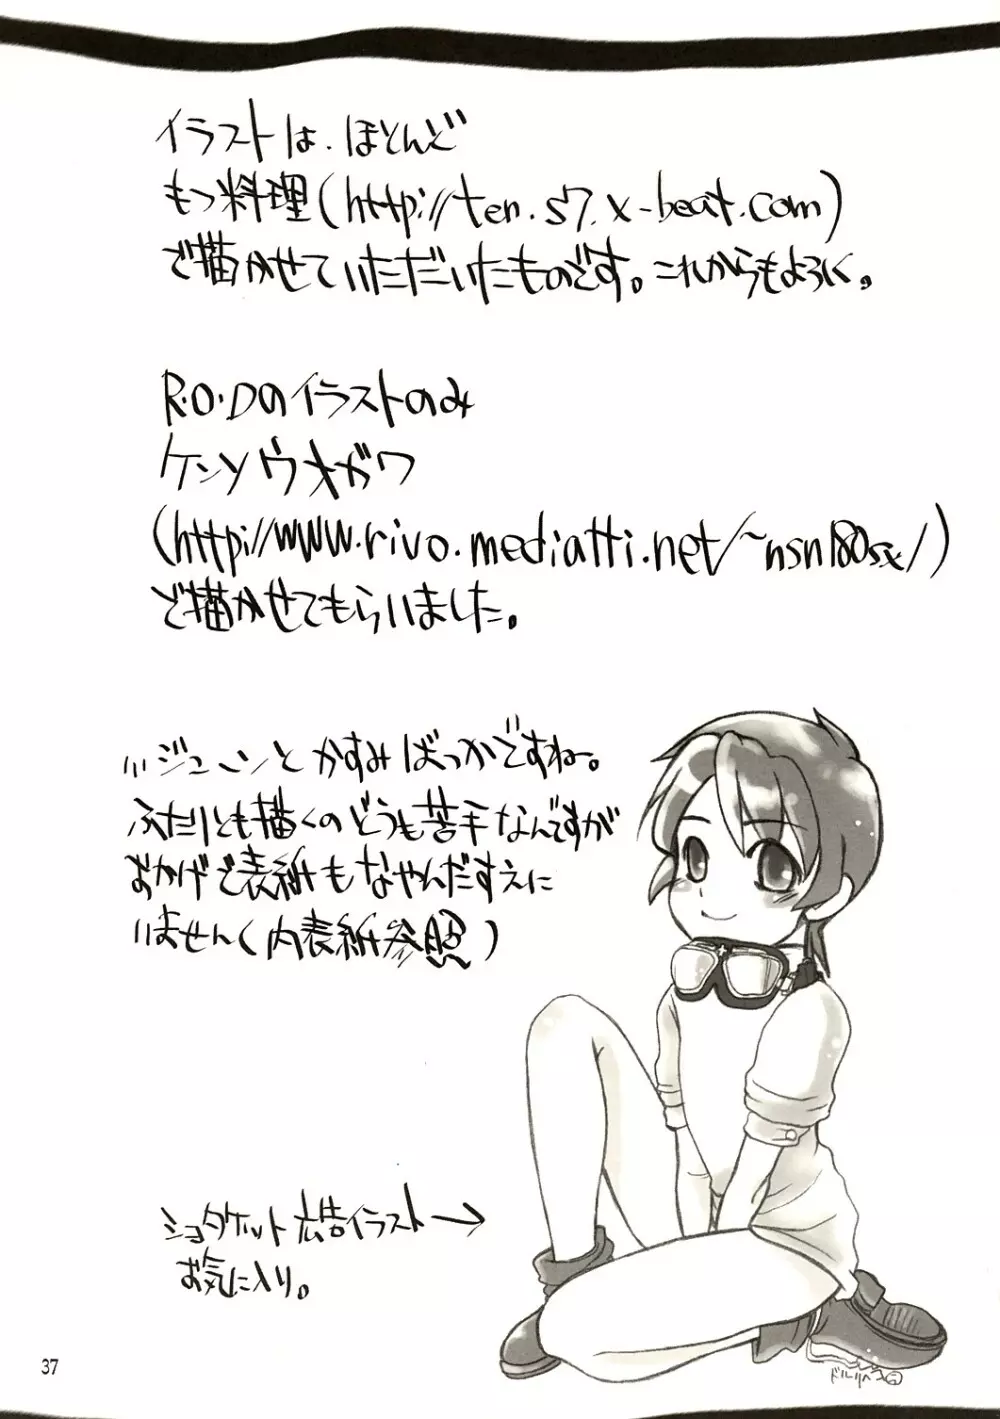 イラストは、ほとんど
もつ料理(http://ten.s7.x-beat.com)
で描かせていただいたものです。これからもよろしく。
R・O・Dのイラストのみ
ケンソウオガワ
(http://www.rivo.mediatti.net/~nsn180sx/)
で描かせてもらいました。
ジューンとかすみばっかですねー。
ふたりとも描くのどうも苦手なんですが
おかげで表紙もなやんだすえに
いません(内表紙参照)
ショタケット広告イラスト→
お気に入り。
37